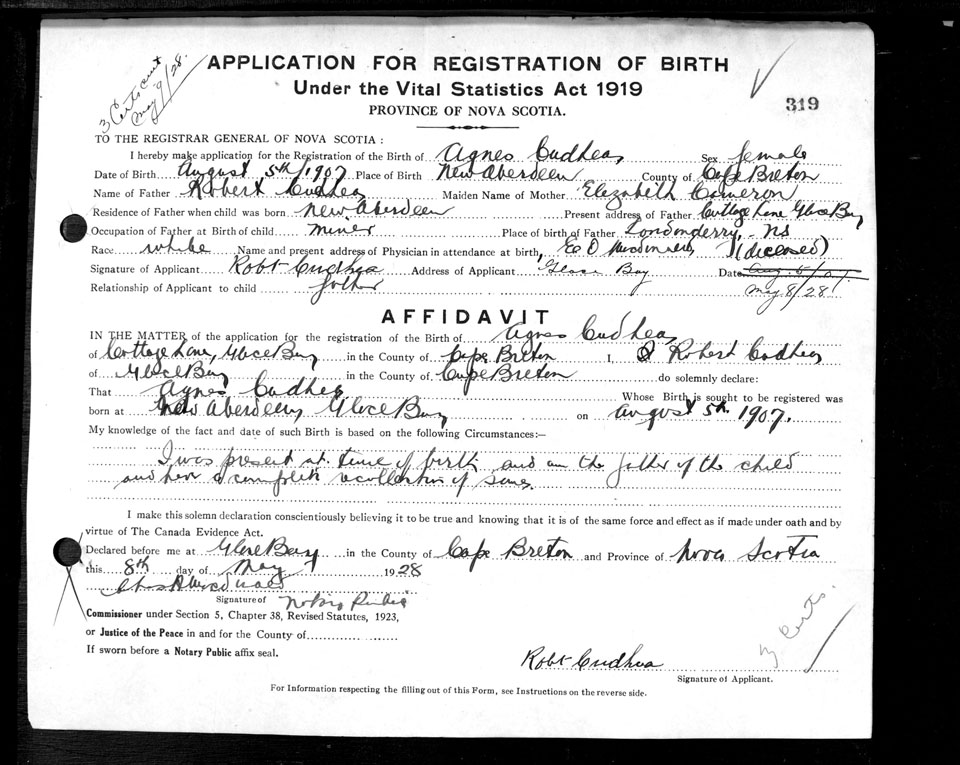 3 Certs sent
May 9/28.
APPLICATION FOR REGISTRATION OF BIRTH
Under the Vital Statistics Act 1919
PROVINCE OF NOVA SCOTIA.
319
TO THE REGISTRAR GENERAL OF NOVA SCOTIA :
I hereby make application for the Registration of the Birth of Agnes Cudhea Sex female
Date of Birth August 5th/1907 Place of Birth New Aberdeen County of Cape Breton
Name of Father Robert Cudhea Maiden Name of Mother Elizabeth Cameron
Residence of Father when child was born New Aberdeen Present address of Father Cottage Lane Glace Bay
Occupation of Father at Birth of child miner Place of birth of Father Londonderry, NS
Race white Name and present address of Physician in attendance at birth, (deceased)
Signature of Applicant Robt Cudhea Address of Applicant Glace Bay Date
May 8/28
Relationship of Applicant to child father
AFFIDAVIT
IN THE MATTER of the application for the registration of the Birth of Agnes Cudhea
of Cottage Lane, Glace Bay in the County of Cape Breton I, Robert Cudhea
of Glace Bay in the County of Cape Breton do solemnly declare:
That Agnes Cudhea Whose Birth is sought to be registered was
born at New Aberdeen, Glace Bay on August 5th, 1907.
My knowledge of the fact and date of such Birth is based on the following Circumstances:—
I was present at time of birth and am the father of the child
and have a complete recollection of same.
I make this solemn declaration conscientiously believing it to be true and knowing that it is of the same force and effect as if made under oath and by
virtue of The Canada Evidence Act.
Declared before me at Glace Bay in the County of Cape Breton and Province of Nova Scotia
this 8th day of May 1928
Signature of Notary Public
Commissioner under Section 5, Chapter 38, Revised Statutes, 1923,
or Justice of the Peace in and for the County of
If sworn before a Notary Public affix seal.
3 Certs.
Robt Cudhea
Signature of Applicant.
For Information respecting the filling out of this Form, see Instructions on the reverse side.